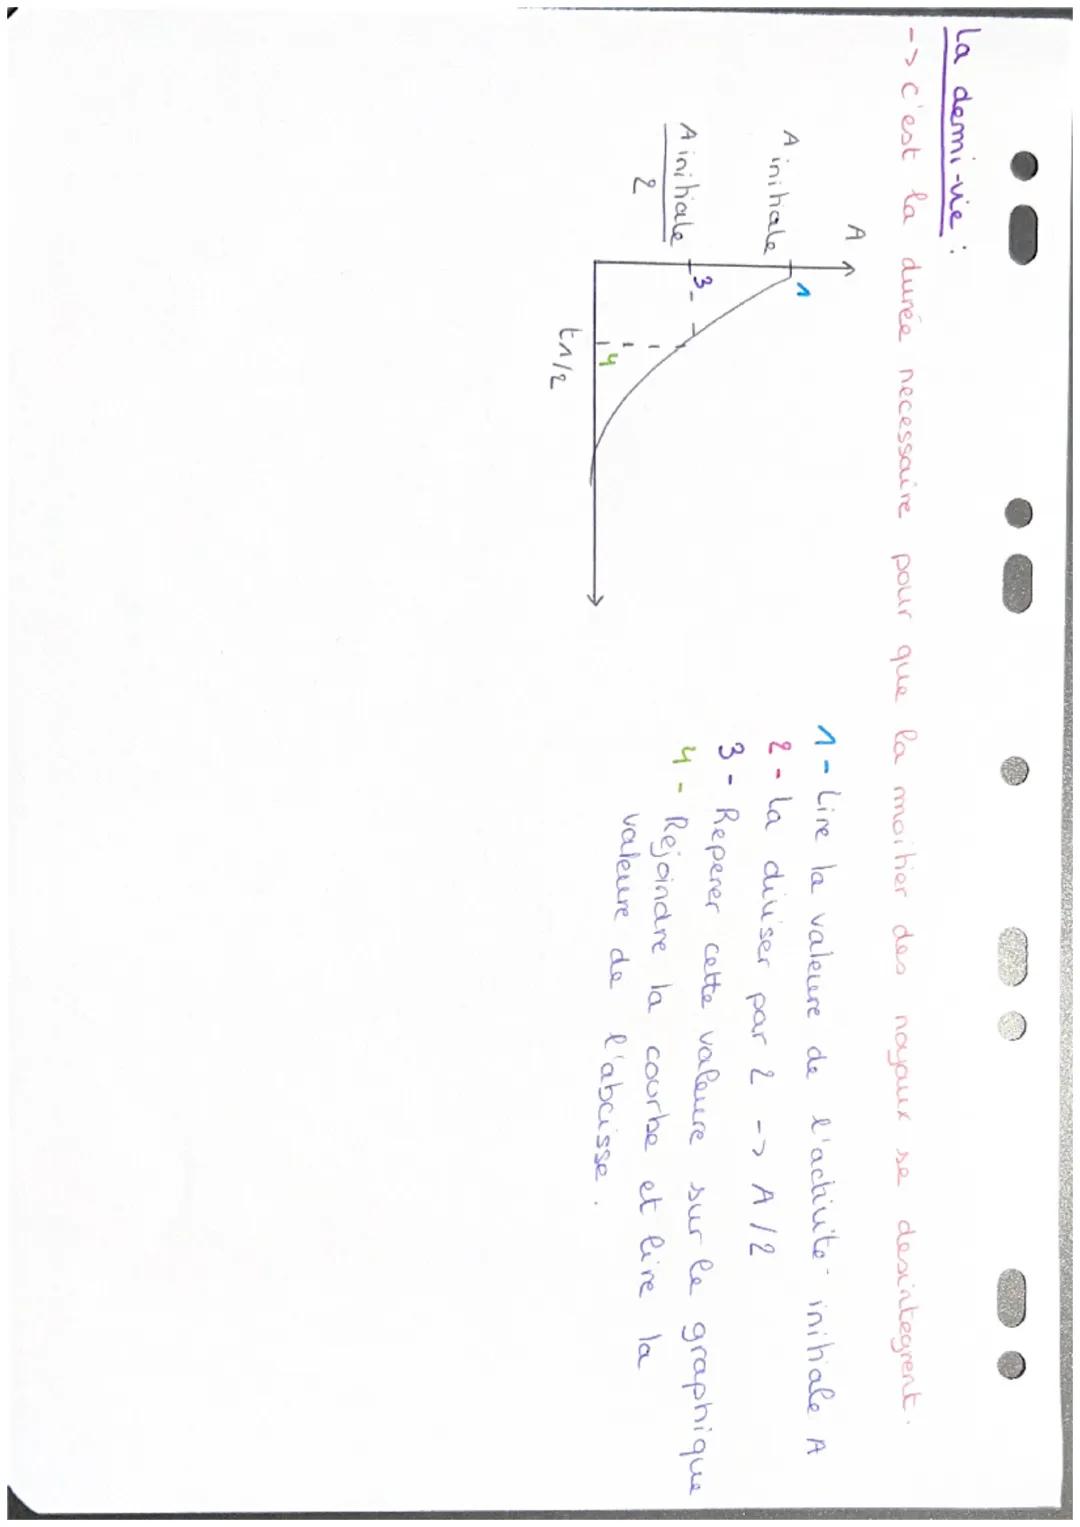 La demi-vie :
-> c'est la durée necessaire pour que la moitier des noyaux se desintegrent.
A
A initiale
1
A initiale
2
3
4
t1/2
1 - Lire la valeure de l'activité initiale A
2 - La diviser par 2 -> A/2
3 - Reperer cette valeure sur le graphique
4 - Rejoindre la courbe et lire la
valeure de l'abcisse.